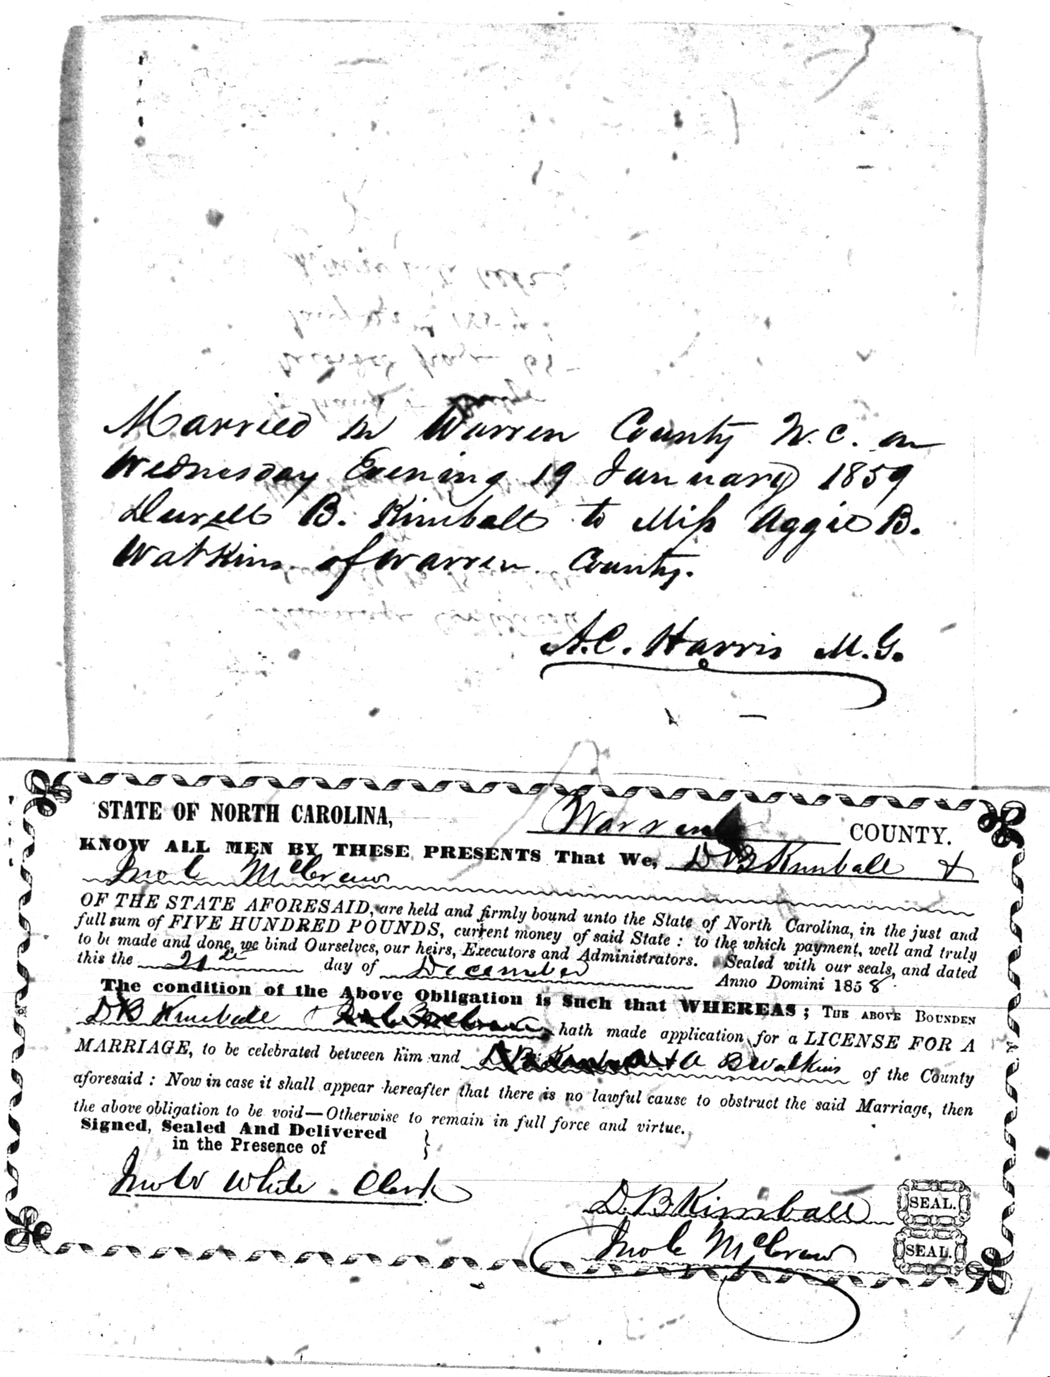 Married in Warren County N.C. on
Wednesday Evening 19 January 1859
Durell B. Kimball to Miss Aggie B.
Watkins of Warren County.
A.C. Harris M.G.
STATE OF NORTH CAROLINA, Warren COUNTY.
KNOW ALL MEN BY THESE PRESENTS That We, D B Kimball &
Jno C McCraw
OF THE STATE AFORESAID, are held and firmly bound unto the State of North Carolina, in the just and
full sum of FIVE HUNDRED POUNDS, current money of said State: to the which payment, well and truly
to be made and done, we bind Ourselves, our heirs, Executors and Administrators. Sealed with our seals, and dated
this the 21st day of December Anno Domini 1858
The condition of the Above Obligation is Such that WHEREAS; THE ABOVE BOUNDEN
D B Kimball hath made application for a LICENSE FOR A
MARRIAGE, to be celebrated between him and A B Watkins of the County
aforesaid: Now in case it shall appear hereafter that there is no lawful cause to obstruct the said Marriage, then
the above obligation to be void—Otherwise to remain in full force and virtue.
Signed, Sealed And Delivered
in the Presence of
White Clerk
D. B Kimball SEAL.
Jno C McCraw SEAL.